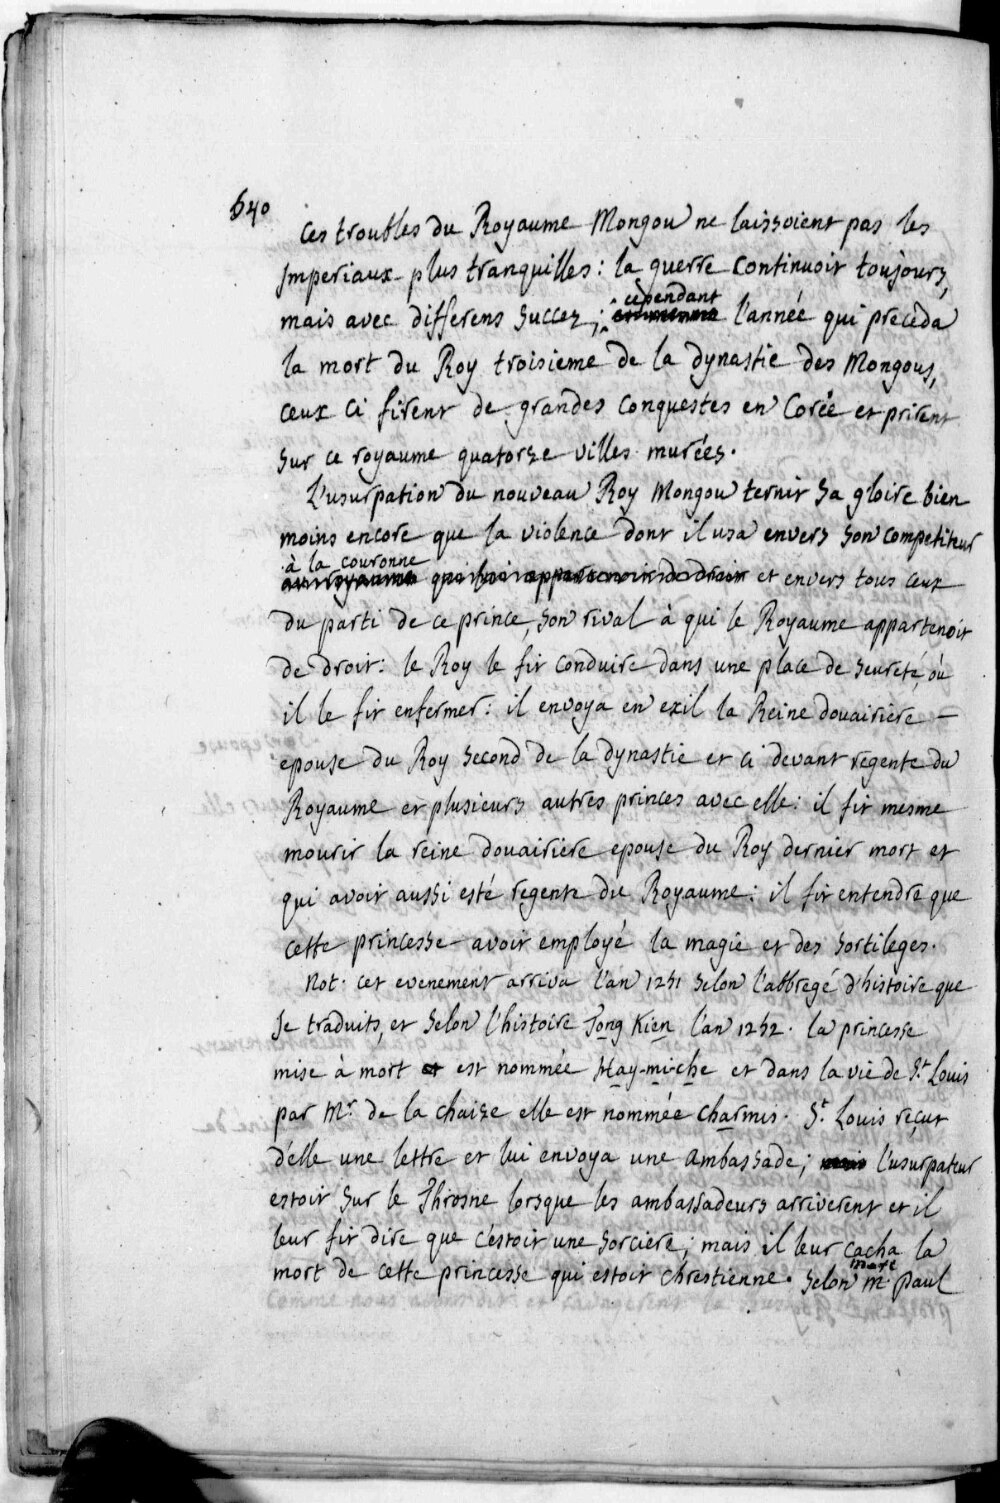 640
ces troubles du Royaume Mongou ne laissoient pas les
Imperiaux plus tranquilles : la guerre continuoit toujours,
mais avec differens succez ; cependant l'année qui preceda
la mort du Roy troisieme de la dynastie des Mongous,
ceux ci firent de grandes conquestes en Corée et prirent
sur ce royaume quatorze villes murées.
L'usurpation du nouveau Roy Mongou ternit sa gloire bien
moins encore que la violence dont il usa envers son competiteur
à la couronne
au royaume qui lui appartenoit de droit et envers tous ceux
du parti de ce prince, son rival à qui le Royaume appartenoit
de droit : le Roy le fit conduire dans une place de seureté, où
il le fit enfermer : il envoya en exil la Reine douairiere –
epouse du Roy second de la dynastie et ci devant regente du
Royaume et plusieurs autres princes avec elle : il fit mesme
mourir la reine douairiere epouse du Roy dernier mort et
qui avoit aussi esté regente du Royaume : il fit entendre que
cette princesse avoit employé la magie et des sortileges.
Not. cet evenement arriva l'an 1251 selon l'abbregé d'histoire que
Je traduits, et selon l'histoire Song Kien l'an 1252. la princesse
mise à mort est nommée Hay-mi-che et dans la vie de St. Louis
par Mr. de la chaize elle est nommée charmis. St. Louis reçut
d'elle une lettre et lui envoya une ambassade ; mais l'usurpateur
estoit sur le Throsne lorsque les ambassadeurs arriverent et il
leur fit dire que c'estoit une sorciere ; mais il leur cacha la
mort de cette princesse qui estoit chrestienne. selon m. marc paul